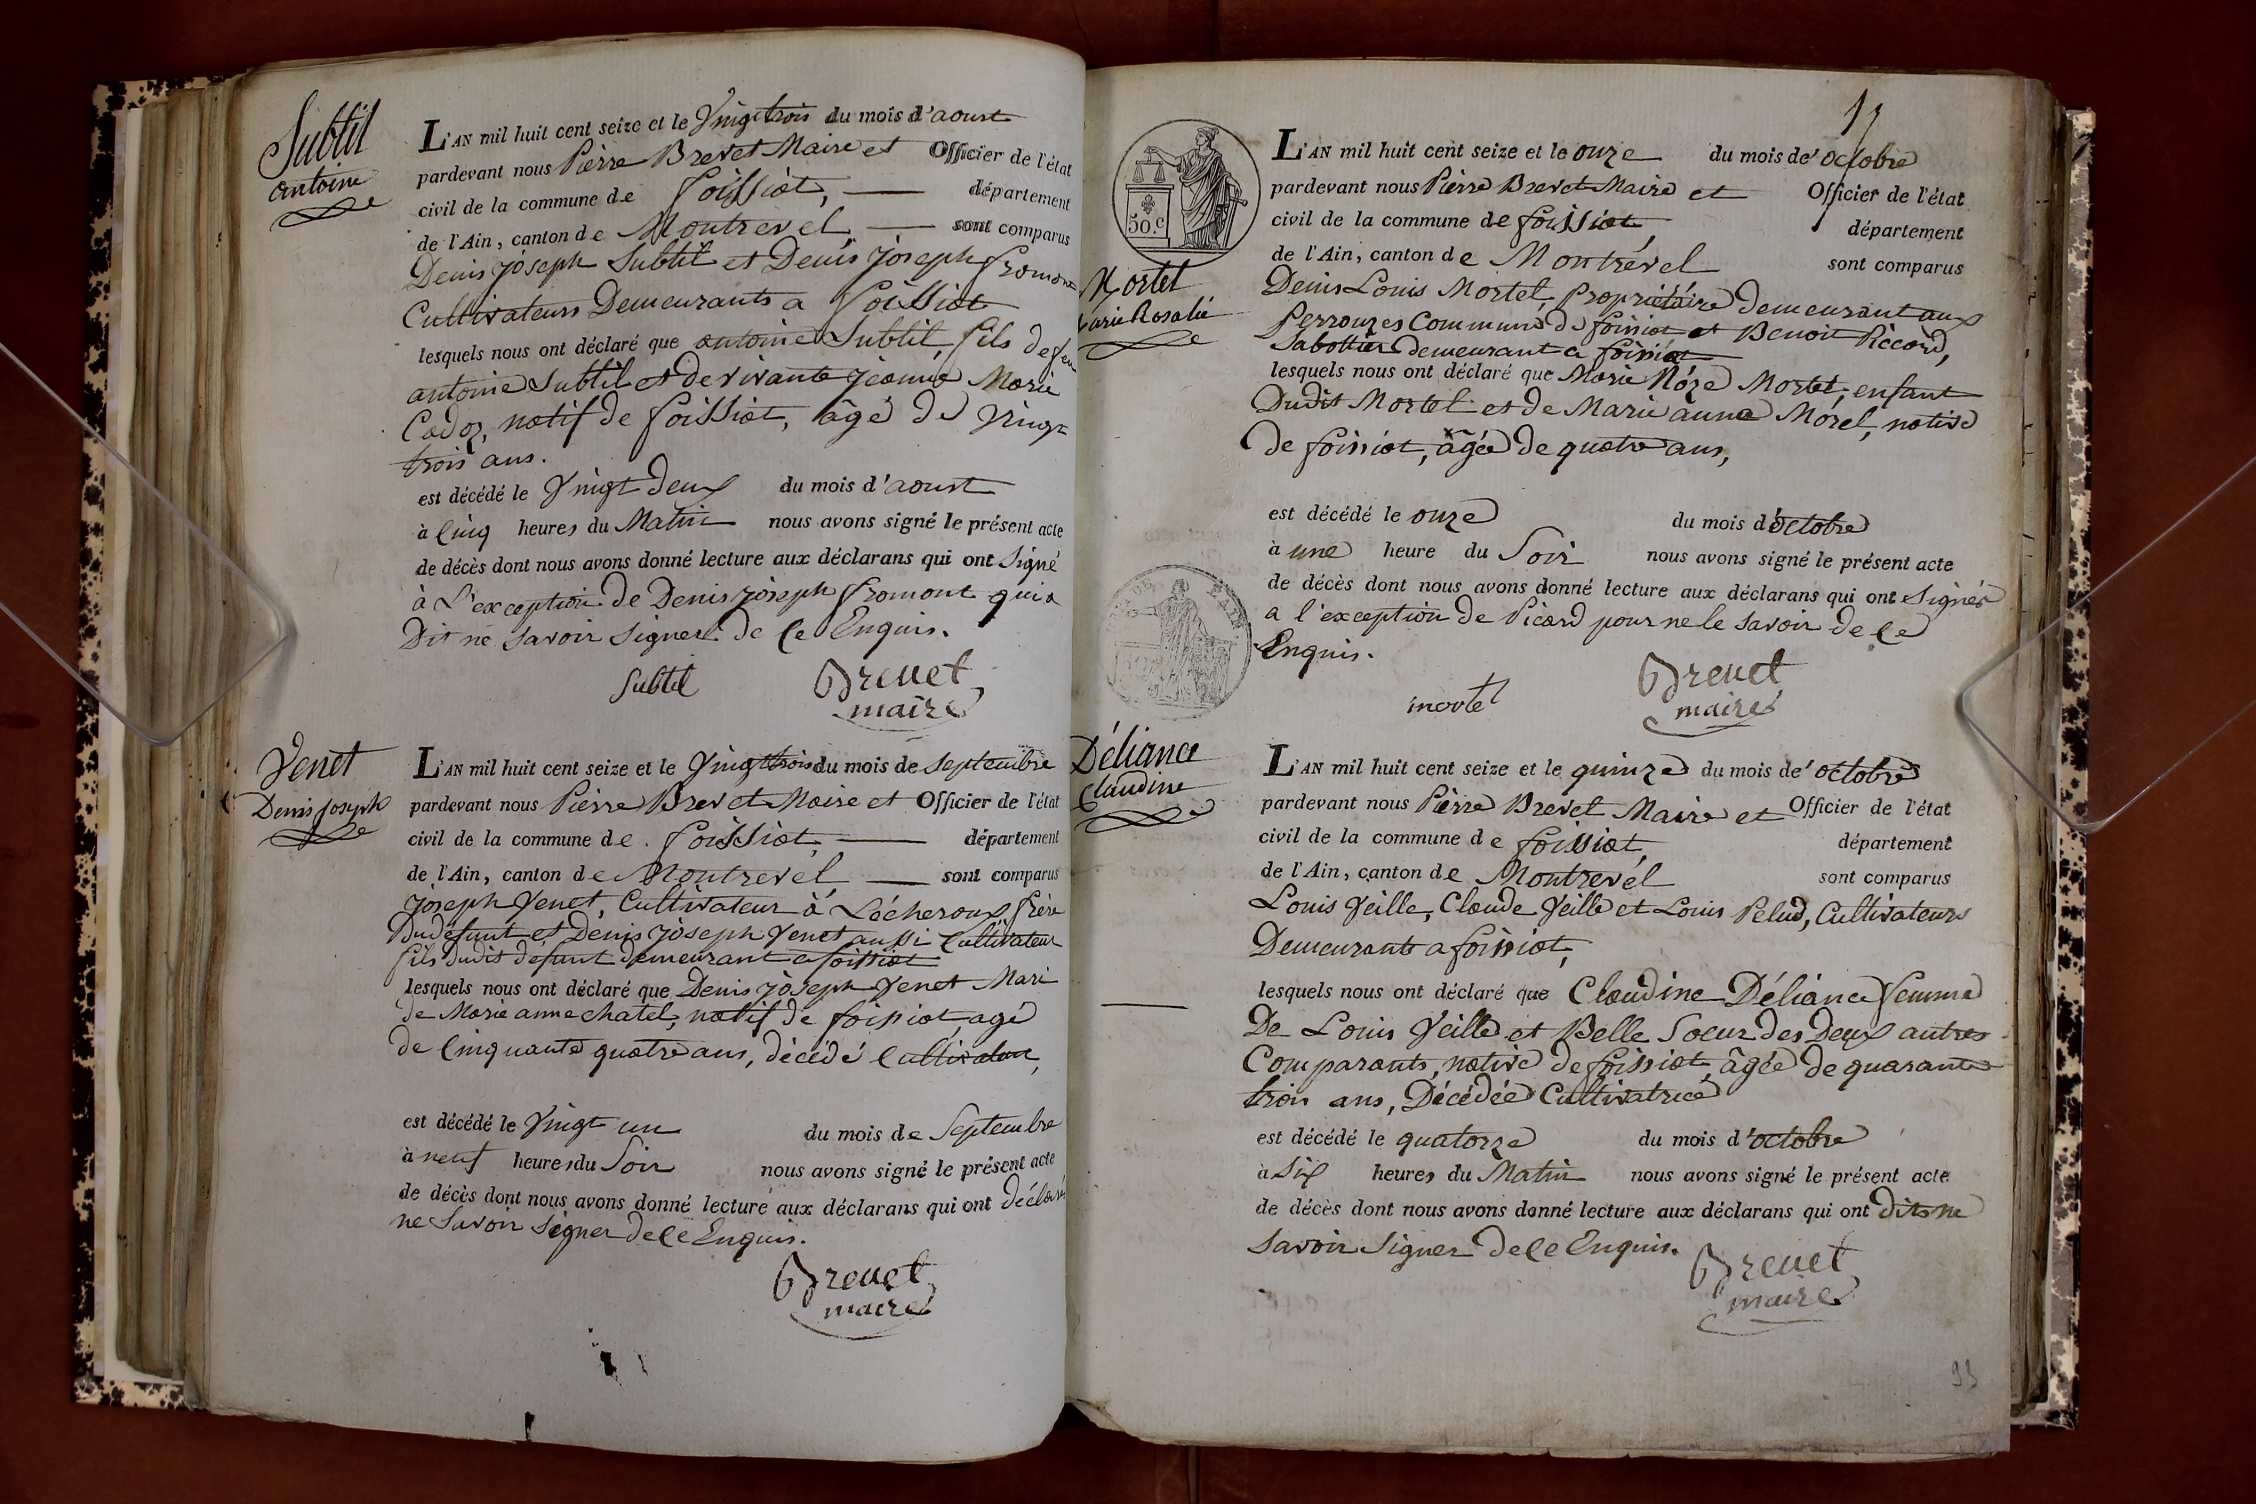 Subtil
antoine
L'AN mil huit cent seize et le Vingt trois du mois d'aoust
pardevant nous Pierre Brevet Maire et Officier de l'état
civil de la commune de foissiat, département
de l'Ain, canton de Montrevel sont comparus
Denis joseph Subtil et Denis joseph fromont
Cultivateurs Demeurants a foissiat
lesquels nous ont déclaré que antoine Subtil, fils de feu
antoine Subtil et de vivante jeanne Marie
Cadoz, natif de foissiat, âgé de vingt
trois ans.
est décédé le Vingt deux du mois d'aoust
à Cinq heures du Matin nous avons signé le présent acte
de décès dont nous avons donné lecture aux déclarans qui ont signé
à L'exception de Denis joseph fromont qui a
Dit ne savoir signer de Ce Enquis.
Subtil Brevet
maire
Venet
Denis joseph
L'AN mil huit cent seize et le Vingt trois du mois de septembre
pardevant nous Pierre Brevet Maire et Officier de l'état
civil de la commune de foissiat, département
de l'Ain, canton de Montrevel, sont comparus
joseph Venet, Cultivateur à Lécheroux, frère
Du défunt et Denis joseph Venet aussi Cultivateur
fils dudit défunt demeurant a foissiat
lesquels nous ont déclaré que Denis joseph Venet Mari
de Marie anne chatel, natif de foissiat, agé
de Cinquante quatre ans, décédé Cultivateur,
est décédé le Vingt un du mois de Septembre
à neuf heures du Soir nous avons signé le présent acte
de décès dont nous avons donné lecture aux déclarans qui ont déclaré
ne Savoir signer de Ce Enquis.
Brevet
maire
17
50.c
Mortel
Marie Rosalie
L'AN mil huit cent seize et le onze du mois de' octobre
pardevant nous Pierre Brevet Maire et Officier de l'état
civil de la commune de foissiat, département
de l'Ain, canton de Montrével sont comparus
Denis Louis Mortel, Propriétaire demeurant aux
Perrouzes Commune de foissiat et Benoit Piccard,
Sabottier demeurant a foissiat
lesquels nous ont déclaré que Marie Róze Mortel, enfant
Dudit Mortel et de Marie anne Morel, native
de foissiat, âgée de quatre ans,
est décédé le onze du mois d'octobre
à une heure du Soir nous avons signé le présent acte
de décès dont nous avons donné lecture aux déclarans qui ont signés
a l'exception de Picard pour ne le savoir de Ce
Enquis.
mortel Brevet
maire
Déliance
Claudine
L'AN mil huit cent seize et le quinze du mois de' octobre
pardevant nous Pierre Brevet Maire et Officier de l'état
civil de la commune de foissiat, département
de l'Ain, canton de Montrevél sont comparus
Louis Veille, Claude Veille et Louis Pelud, Cultivateurs
Demeurants a foissiat,
lesquels nous ont déclaré que Claudine Déliance femme
De Louis Veille et Belle Soeur des Deux autres
Comparants, native de foissiat, âgée de quarante
trois ans, Décédée Cultivatrice
est décédé le quatorze du mois d'octobre
à Six heures du Matin nous avons signé le présent acte
de décès dont nous avons donné lecture aux déclarans qui ont dits ne
savoir signer de Ce Enquis.
Brevet
maire
93